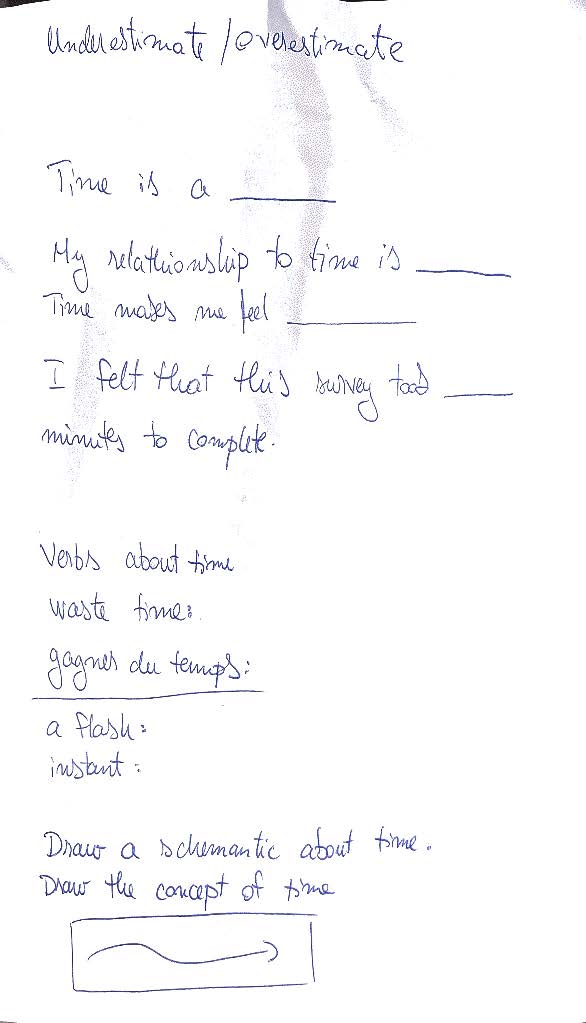 Underestimate / overestimate
Time is a ______
My relathionship to time is ______
Time makes me feel ______
I felt that this survey took ____
minutes to complete.
Verbs about time
waste time:
gagner du temps:
a flash:
instant:
Draw a schemantic about time.
Draw the concept of time